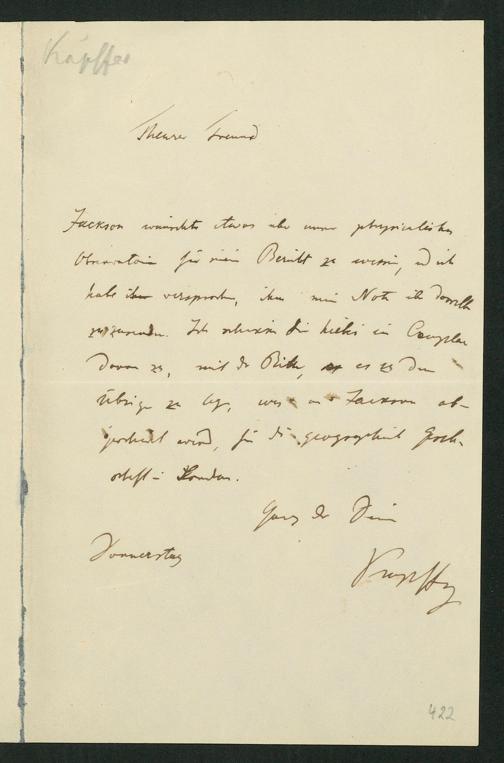 Kupffer
Theurer Freund
Jackson wünscht etwas über unser physicalisches
Observatorium für sein Bericht zu wissen, und ich
habe ihm versprochen, ihm eine Note über dasselbe
zuzusenden. Ich schicke Dir hiebei ein Exemplar
davon zu, mit der Bitte, es zu dem
Übrigen zu legen, was an Jackson ab-
geschickt wird, für die geographische Gesell-
schaft in London.
Ganz der Deine
Donnerstag
Kupffer
422